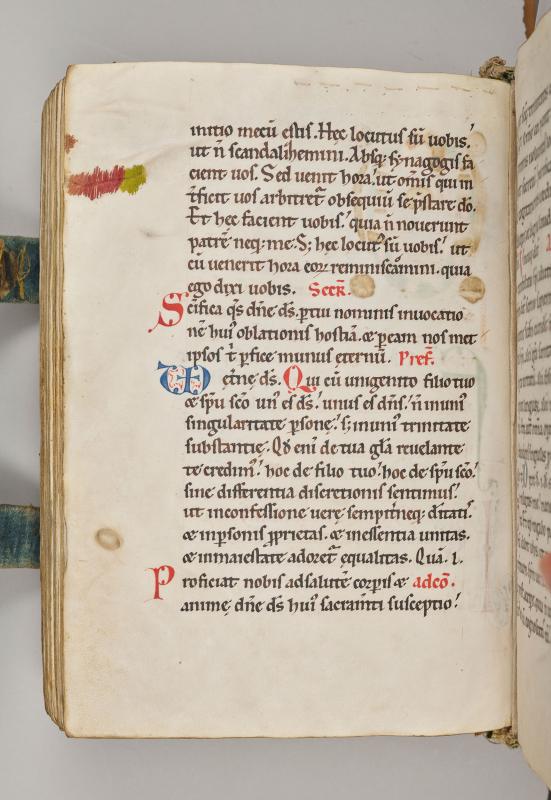 initio mecū estis. Hęc locutus sū uobis.
ut ñ scandalizemini. Absq; synagogis fa
cient uos. Sed uenit hora. ut omīs qui in
t̄ficit uos arbitret̄ obsequiū se p̄stare dō.
Et hęc facient uobis. quia ñ nouerunt
patrē neq; me. S; hęc locut᷒ sū uobis. ut
cū uenerit hora eoꝝ reminiscāmini. quia
ego dixi uobis. Secꝶ.
Scifica q̄s dn̄e ds̄. ꝑ tui nominis inuocatio
nē hui᷒ oblationis hostiā. & ꝑ eam nos met
ipsos t̄ ꝑfice munus eternū. Pref.
VD etn̄e ds̄. Qui cū unigenito filio tuo
& sp̄u sc̄o un᷒ es ds̄. unus es dn̄s. ñ in uni᷒
singularitate ꝑsonę. s; in uni᷒ trinitate
substantię. Qd̄ eni de tua gl̄a reuelante
te credim᷒. hoc de filio tuo. hoc de sp̄u sc̄o.
sine differentia discretionis sentimus.
ut in confessione uerę sempit̄neq; d̄itati.
& in ꝑsonis ꝓprietas. & in essentia unitas.
& in maiestate adoret̄ equalitas. Quā. l.
Proficiat nobis ad salutē corꝑis & ad cō.
animę dn̄e ds̄ hui᷒ sacram̄ti susceptio.